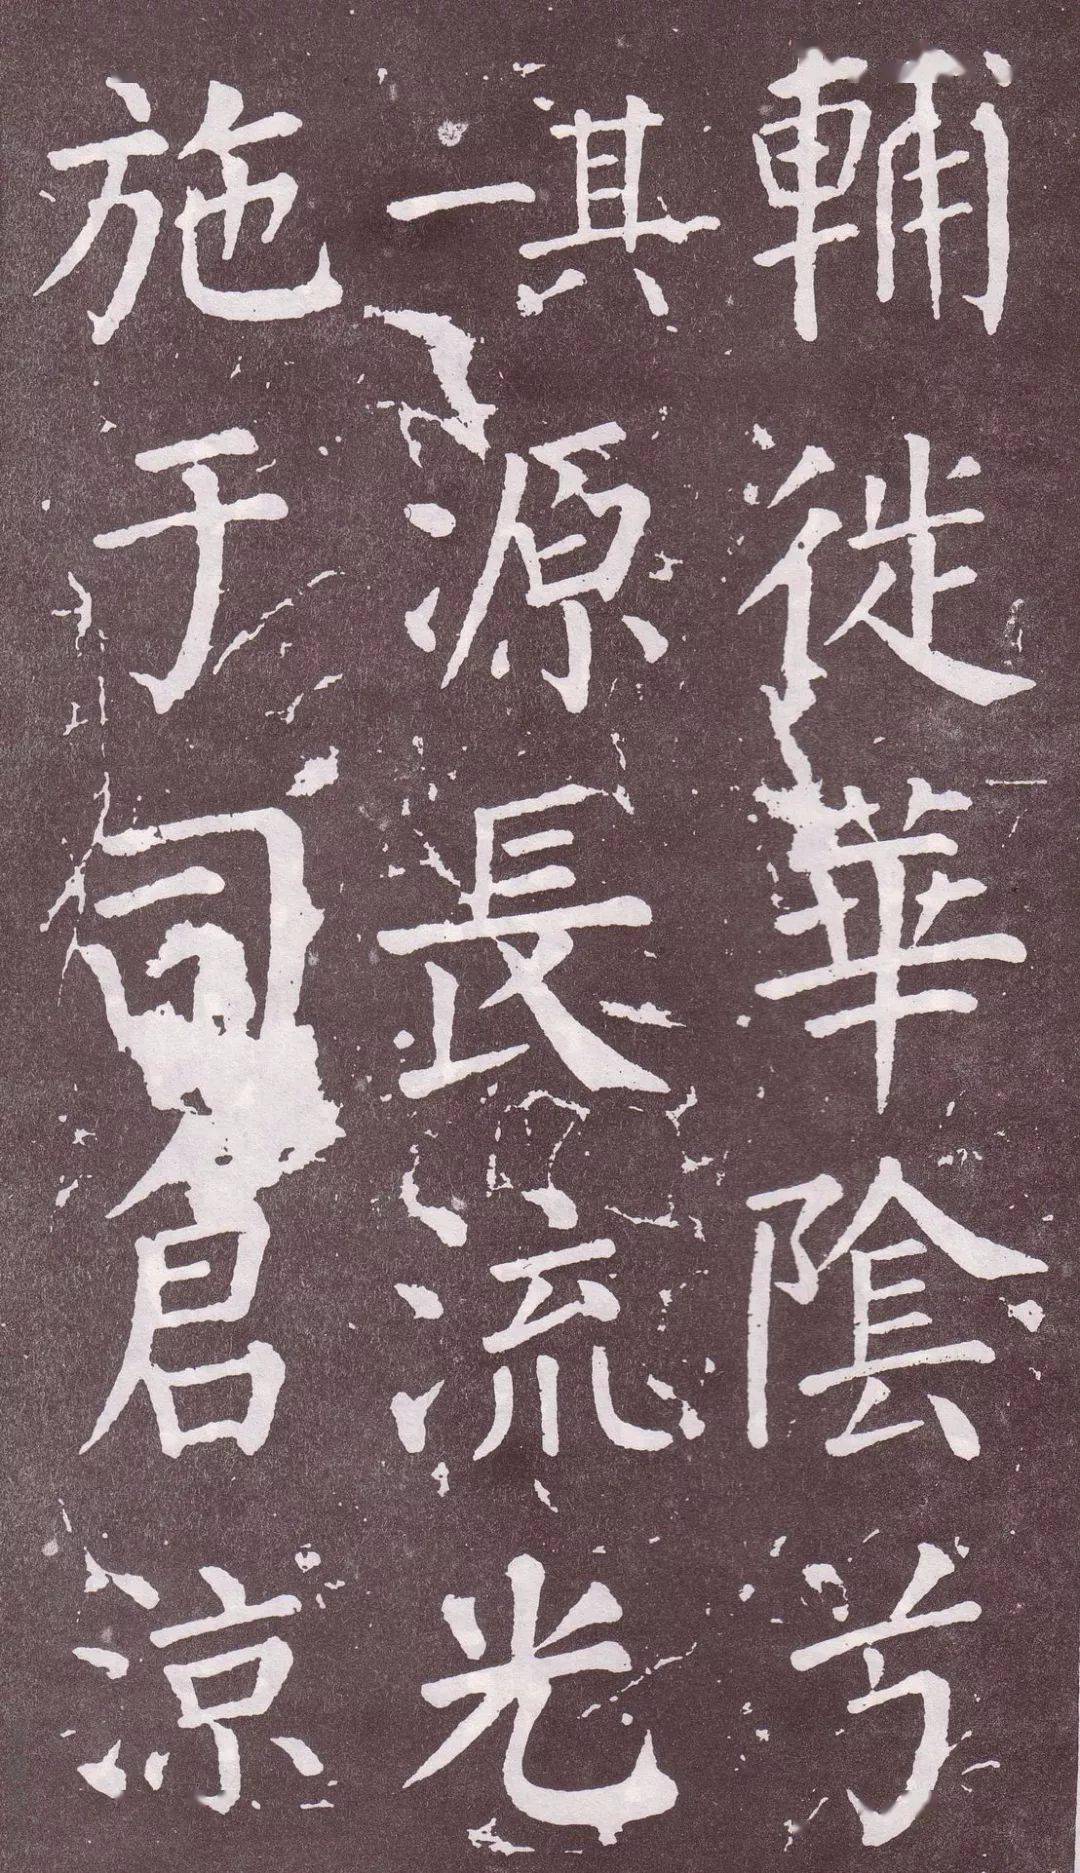 輔徙華陰兮
其一源長流光
施于司倉涼